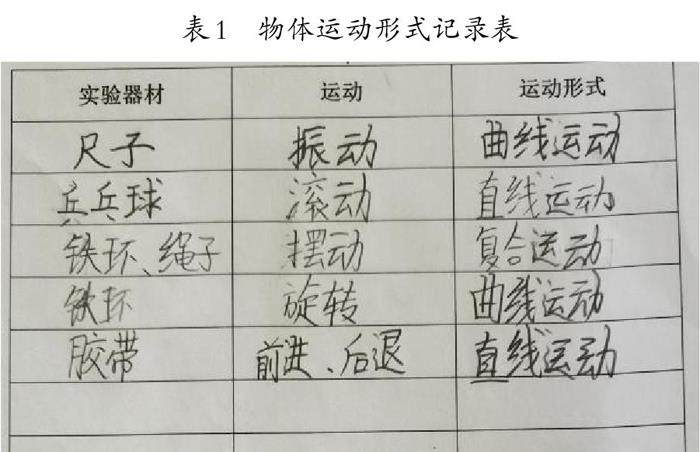 表1 物体运动形式记录表
实验器材 运动 运动形式
尺子 振动 曲线运动
乒乓球 滚动 直线运动
铁环、绳子 摆动 复合运动
铁环 旋转 曲线运动
胶带 前进、后退 直线运动